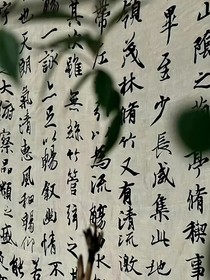 山陰之亭脩禊事
畢至少長咸集此地
領茂林脩竹又有清流激
帶左為流觴
其次雖無絲竹管弦之
一詠以暢叙幽情
也天朗氣清惠風和暢仰
大俯察品類之盛